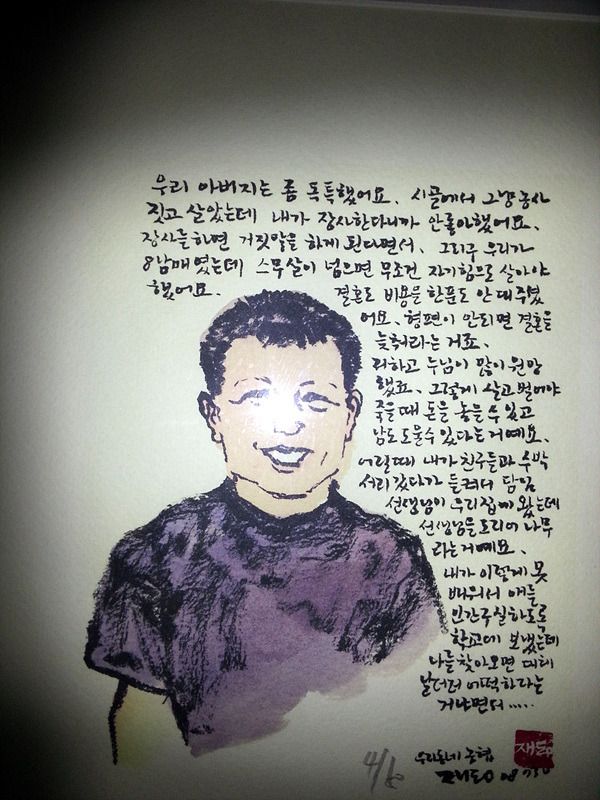 우리 아버지는 좀 독특했어요. 시골에서 그냥 농사
짓고 살았는데 내가 장사한다니까 안좋아했어요.
장사를하면 거짓말을 하게 된다면서. 그리구 우리가
8남매였는데 스무살이 넘으면 무조건 자기힘으로 살아야
했어요. 결혼도 비용을 한푼도 안 대주셨
어요. 형편이 안되면 결혼을
늦춰라는 거죠.
저하고 누님이 많이 원망
했죠. 그렇게 살고 벌어야
죽을 때 돈을 놓을 수 있고
남도 도울 수 있다는 거예요.
어릴때 내가 친구들과 수박
서리 갔다가 들켜서 담임
선생님이 우리집에 왔는데
선생님을 도리어 나무
라는거예요.
내가 이렇게 못
배워서 애들
인간구실하도록
학교에 보냈는데
나를 찾아오면 대체
날더러 어떡하라는
거냐면서.....
4/6
우리동네 농협
재동
재동